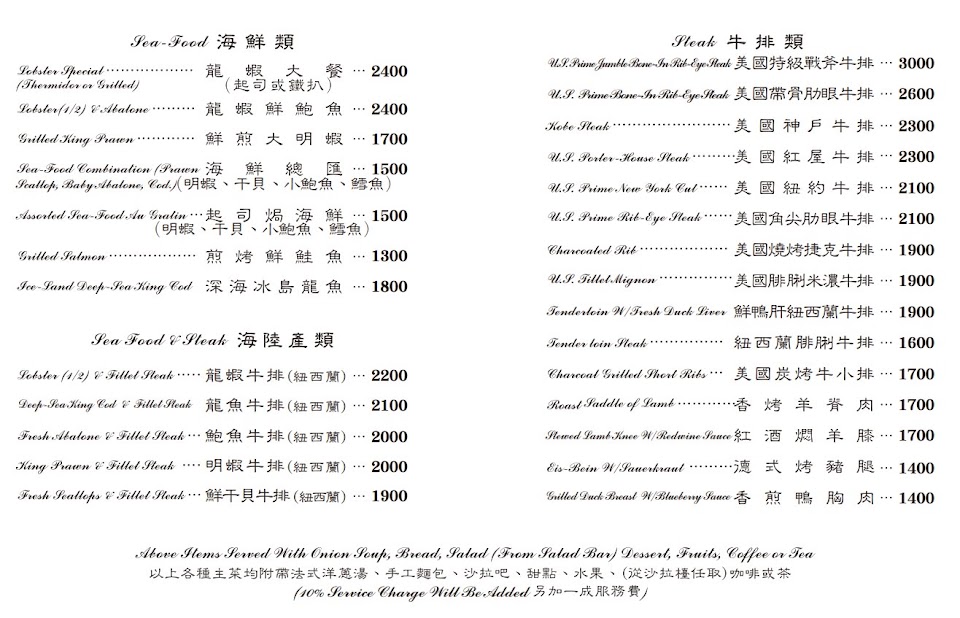 Sea-Food 海鮮類
Lobster Special ·················· 龍蝦大餐 ··· 2400
(Thermidor or Grilled) (起司或鐵扒)
Lobster(1/2) & Abalone ········· 龍蝦鮮鮑魚 ··· 2400
Grilled King Prawn ············ 鮮煎大明蝦 ··· 1700
Sea-Food Combination (Prawn 海鮮總匯 ··· 1500
Scallop, Baby Abalone, Cod.) (明蝦、干貝、小鮑魚、鱈魚)
Assorted Sea-Food Au Gratin ··· 起司焗海鮮 ··· 1500
(明蝦、干貝、小鮑魚、鱈魚)
Grilled Salmon ·················· 煎烤鮮鮭魚 ··· 1300
Ice-Land Deep-Sea King Cod 深海冰島龍魚 ··· 1800
Sea Food & Steak 海陸產類
Lobster (1/2) & Fillet Steak ····· 龍蝦牛排(紐西蘭) ··· 2200
Deep-Sea King Cod & Fillet Steak 龍魚牛排(紐西蘭) ··· 2100
Fresh Abalone & Fillet Steak ··· 鮑魚牛排(紐西蘭) ··· 2000
King Prawn & Fillet Steak ···· 明蝦牛排(紐西蘭) ··· 2000
Fresh Scallops & Fillet Steak ··· 鮮干貝牛排(紐西蘭) ··· 1900
Steak 牛排類
U.S. Prime Jumble Bone-In Rib-Eye Steak 美國特級戰斧牛排 ··· 3000
U.S. Prime Bone-In Rib-Eye Steak 美國帶骨肋眼牛排 ··· 2600
Kobe Steak ························ 美國神戶牛排 ··· 2300
U.S. Porter-House Steak ········ 美國紅屋牛排 ··· 2300
U.S. Prime New York Cut ······ 美國紐約牛排 ··· 2100
U.S. Prime Rib-Eye Steak ······ 美國角尖肋眼牛排 ··· 2100
Charcoaled Rib ·················· 美國燒烤捷克牛排 ··· 1900
U.S. Fillet Mignon ··············· 美國腓脷米濃牛排 ··· 1900
Tenderloin W/Fresh Duck Liver 鮮鴨肝紐西蘭牛排 ··· 1900
Tender loin Steak ··············· 紐西蘭腓脷牛排 ··· 1600
Charcoal Grilled Short Ribs ··· 美國炭烤牛小排 ··· 1700
Roast Saddle of Lamb ············ 香烤羊脊肉 ··· 1700
Stewed Lamb Knee W/Redwine Sauce 紅酒燜羊膝 ··· 1700
Eis-Bein W/Sauerkraut ········· 德式烤豬腿 ··· 1400
Grilled Duck Breast W/Blueberry Sauce 香煎鴨胸肉 ··· 1400
Above Items Served With Onion Soup, Bread, Salad (From Salad Bar) Dessert, Fruits, Coffee or Tea
以上各種主菜均附帶法式洋蔥湯、手工麵包、沙拉吧、甜點、水果、(從沙拉檯任取)咖啡或茶
(10% Service Charge Will Be Added 另加一成服務費)